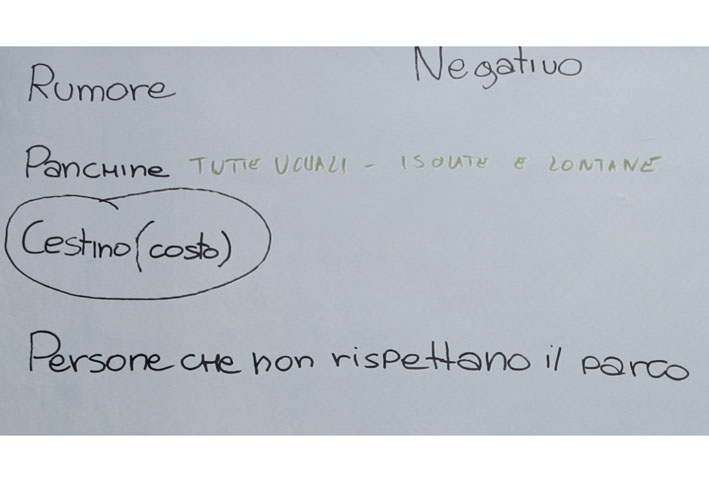 Negativo
Rumore
Panchine TUTTE UGUALI - ISOLATE E LONTANE
Cestino (costo)
Persone che non rispettano il parco